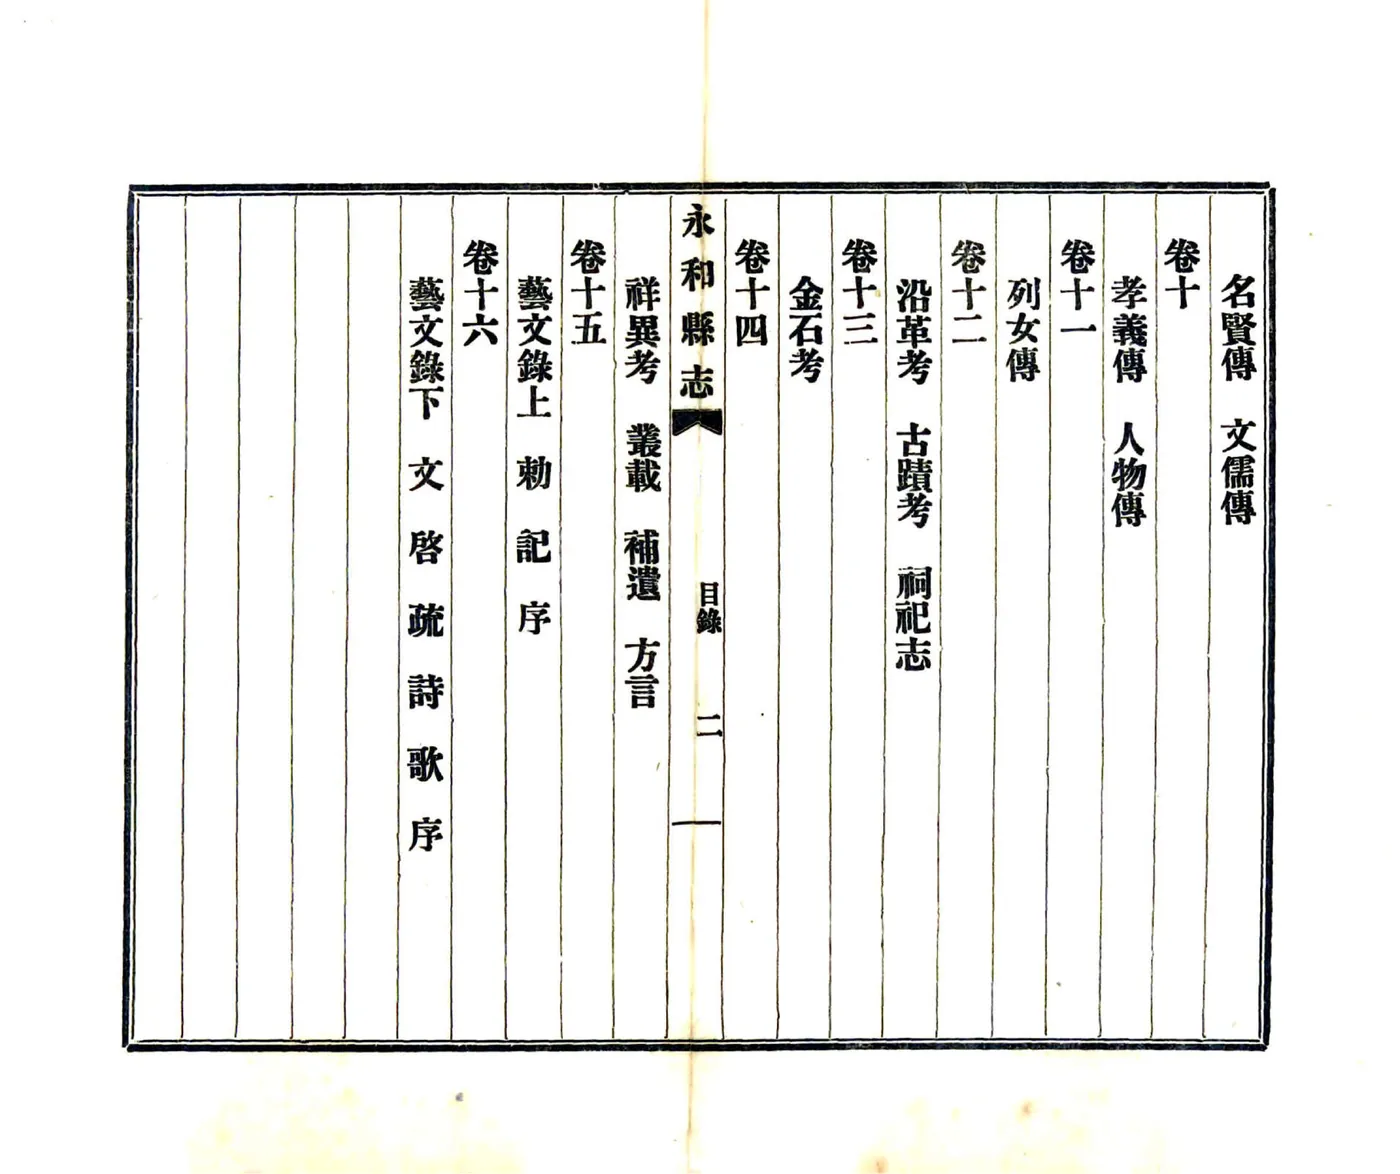 名賢傳　文儒傳
卷十
孝義傳　人物傳
卷十一
列女傳
卷十二
沿革考　古蹟考　祠祀志
卷十三
金石考
卷十四
永和縣志　目錄　二
祥異考　叢載　補遺　方言
卷十五
藝文錄上　勅　記　序
卷十六
藝文錄下　文　啓　疏　詩　歌　序